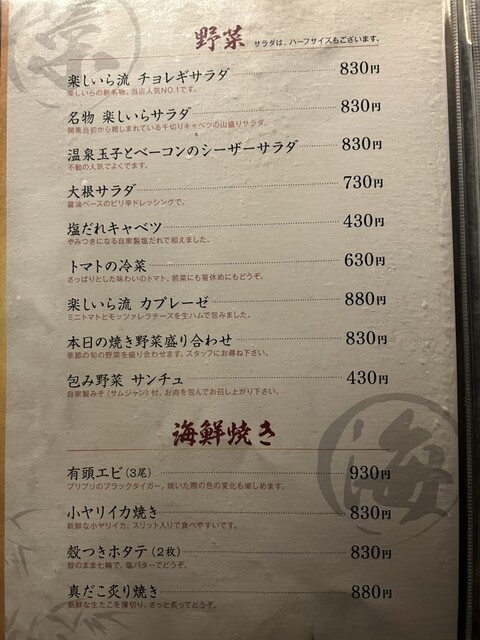 楽
野菜 サラダは、ハーフサイズもございます。
楽しいら流 チョレギサラダ 830円
楽しいらの新名物、当店人気NO.1です。
名物 楽しいらサラダ 830円
開業当初から親しまれている千切りキャベツの山盛りサラダ。
温泉玉子とベーコンのシーザーサラダ 830円
不動の人気でよくでます。
大根サラダ 730円
醤油ベースのピリ辛ドレッシングで。
塩だれキャベツ 430円
やみつきになる自家製塩だれで和えました。
トマトの冷菜 630円
さっぱりとした味わいのトマト。前菜にも箸休めにもどうぞ。
楽しいら流 カプレーゼ 880円
ミニトマトとモッツァレラチーズを生ハムで包みました。
本日の焼き野菜盛り合わせ 830円
季節の旬の野菜を盛り合わせます。スタッフにお尋ね下さい。
包み野菜 サンチュ 430円
自家製みそ（サムジャン）付。お肉を包んでお召し上がり下さい。
海鮮焼き
海
有頭エビ（3尾） 930円
プリプリのブラックタイガー。焼いた際の色の変化も楽しめます。
小ヤリイカ焼き 830円
新鮮な小ヤリイカ。スリット入りで食べやすいです。
殻つきホタテ（2枚） 830円
殻のまま七輪で、塩バターでどうぞ。
真だこ炙り焼き 880円
新鮮な生たこを薄切り。さっと炙ってどうぞ。